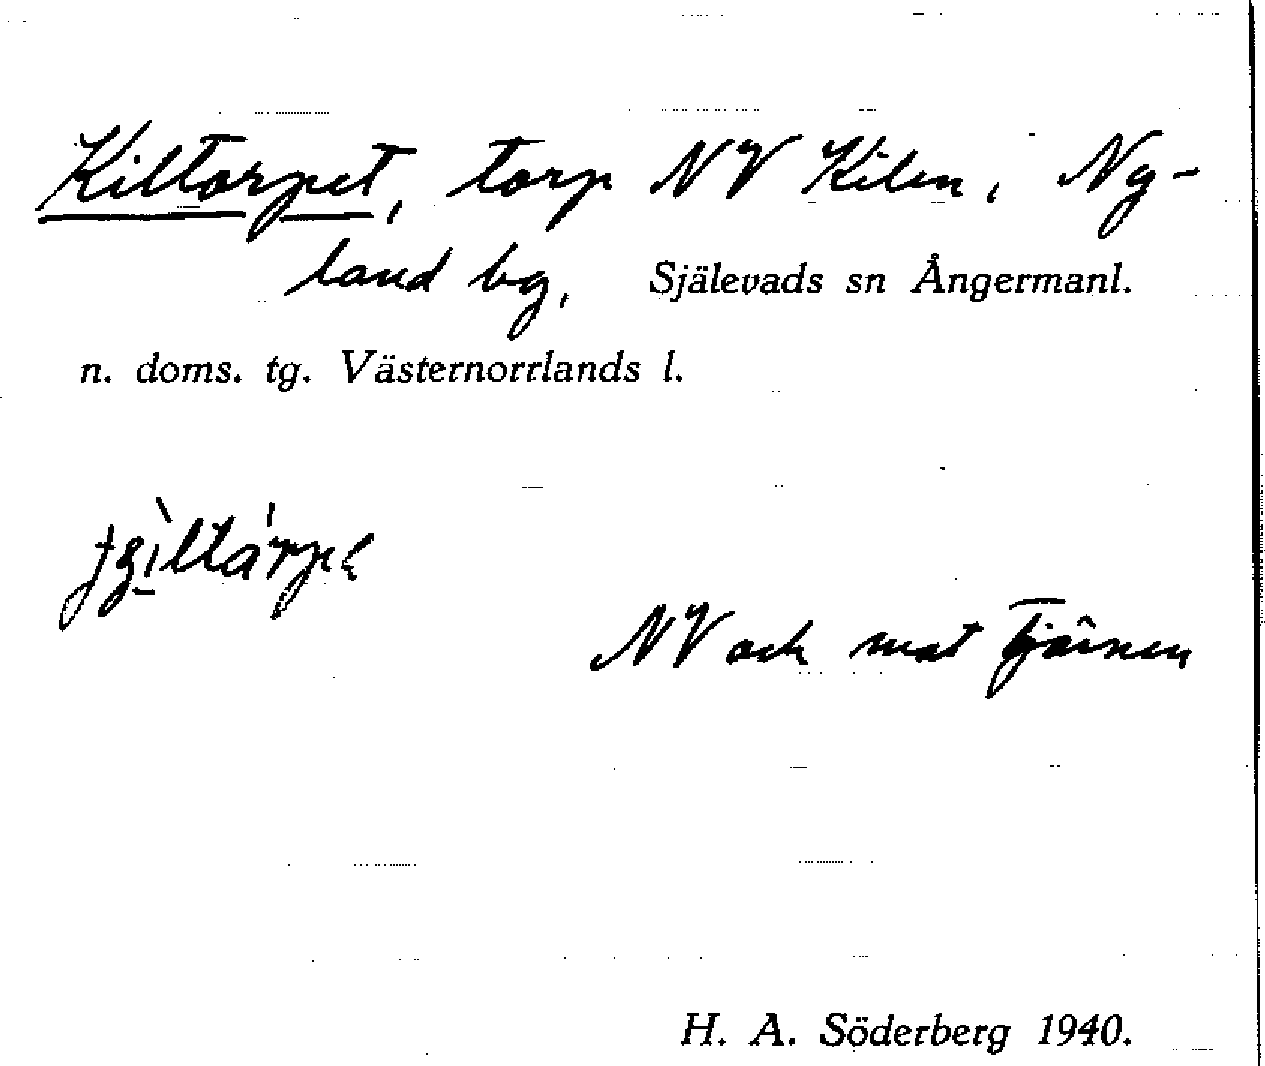 Kiltorpet, torp NV Kilen, Ny-
land bg, Själevads sn Ångermanl.
n. doms. tg. Västernorrlands l.
NV och mot Tjärnen
H. A. Söderberg 1940.